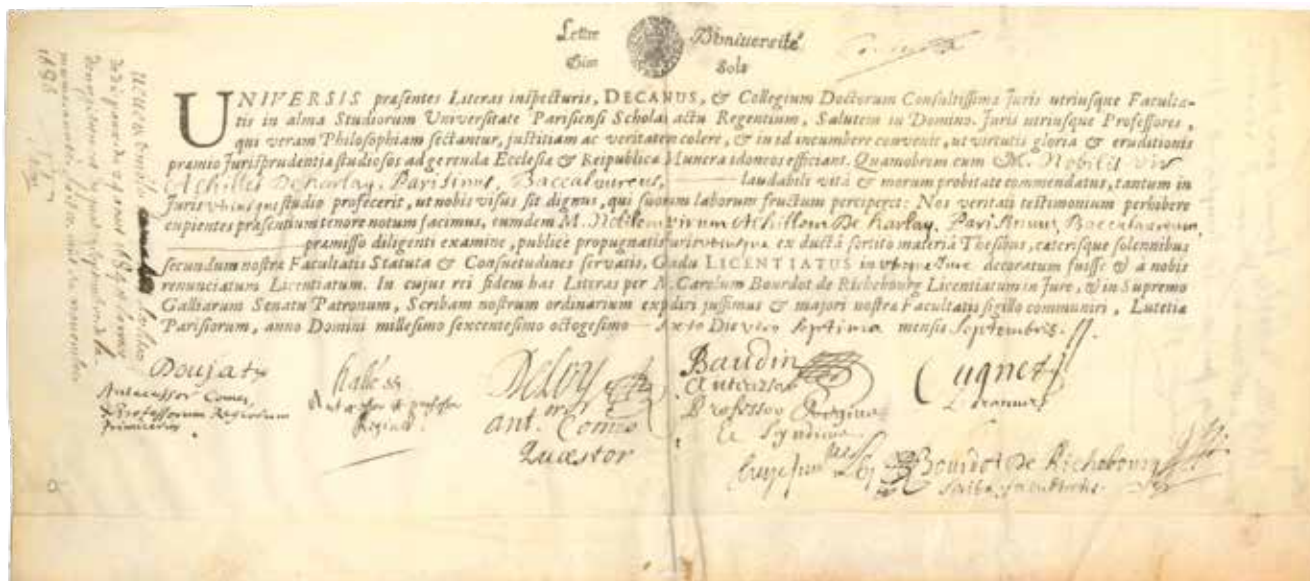 Lettre D'Université
Cinq Sols
UNIVERSIS præsentes Literas inspecturis, DECANUS, & Collegium Doctorum Consultissimæ Juris utriusque Faculta-
tis in alma Studiorum Universitate Parisiensi Scholas actu Regentium, Salutem in Domino. Juris utriusque Professores,
qui veram Philosophiam sectantur, justitiam ac veritatem colere, & in id incumbere convenit, ut virtutis gloria & eruditionis
præmio Jurisprudentiæ studiosos ad gerenda Ecclesiæ & Reipublicæ Munera idoneos efficiant. Quamobrem cum M. Nobilis vir
Achilles De harlay, Parisinus, Baccalaureus, laudabili vitâ & morum probitate commendatus, tantum in
Juris utriusque studio profecerit, ut nobis visus sit dignus, qui suorum laborum fructum perciperet: Nos veritati testimonium perhibere
cupientes præsentium tenore notum facimus, eumdem M. Nobilem virum Achillem De harlay, Parisinum, Baccalaureum,
præmisso diligenti examine, publicè propugnatis Juris utriusque ex ductâ sortito materiâ Thesibus, cæterisque solennibus
secundùm nostræ Facultatis Statuta & Consuetudines servatis, Gradu LICENTIATUS in utroque Jure decoratum fuisse & à nobis
renunciatum Licentiatum. In cujus rei fidem has Literas per M. Carolum Bourdot de Richebourg Licentiatum in Jure, & in Supremo
Galliarum Senatu Patronum, Scribam nostrum ordinarium expediri jussimus & majori nostræ Facultatis sigillo communiri, Lutetiæ
Parisiorum, anno Domini millesimo sexcentesimo octogesimo sexto Die vero septima mensis Septembris.
Doujat
Antecessor Comes,
Professorum Regiorum
Primicerius
Halé
Antecessor et professor
Regius
Deloy
ant.or Comes
Quæstor
Baudin
Antecessor
Professor Regius
et Syndicus
Cugnet
Decanus
Bourdot De Richebourg
scriba facultatis